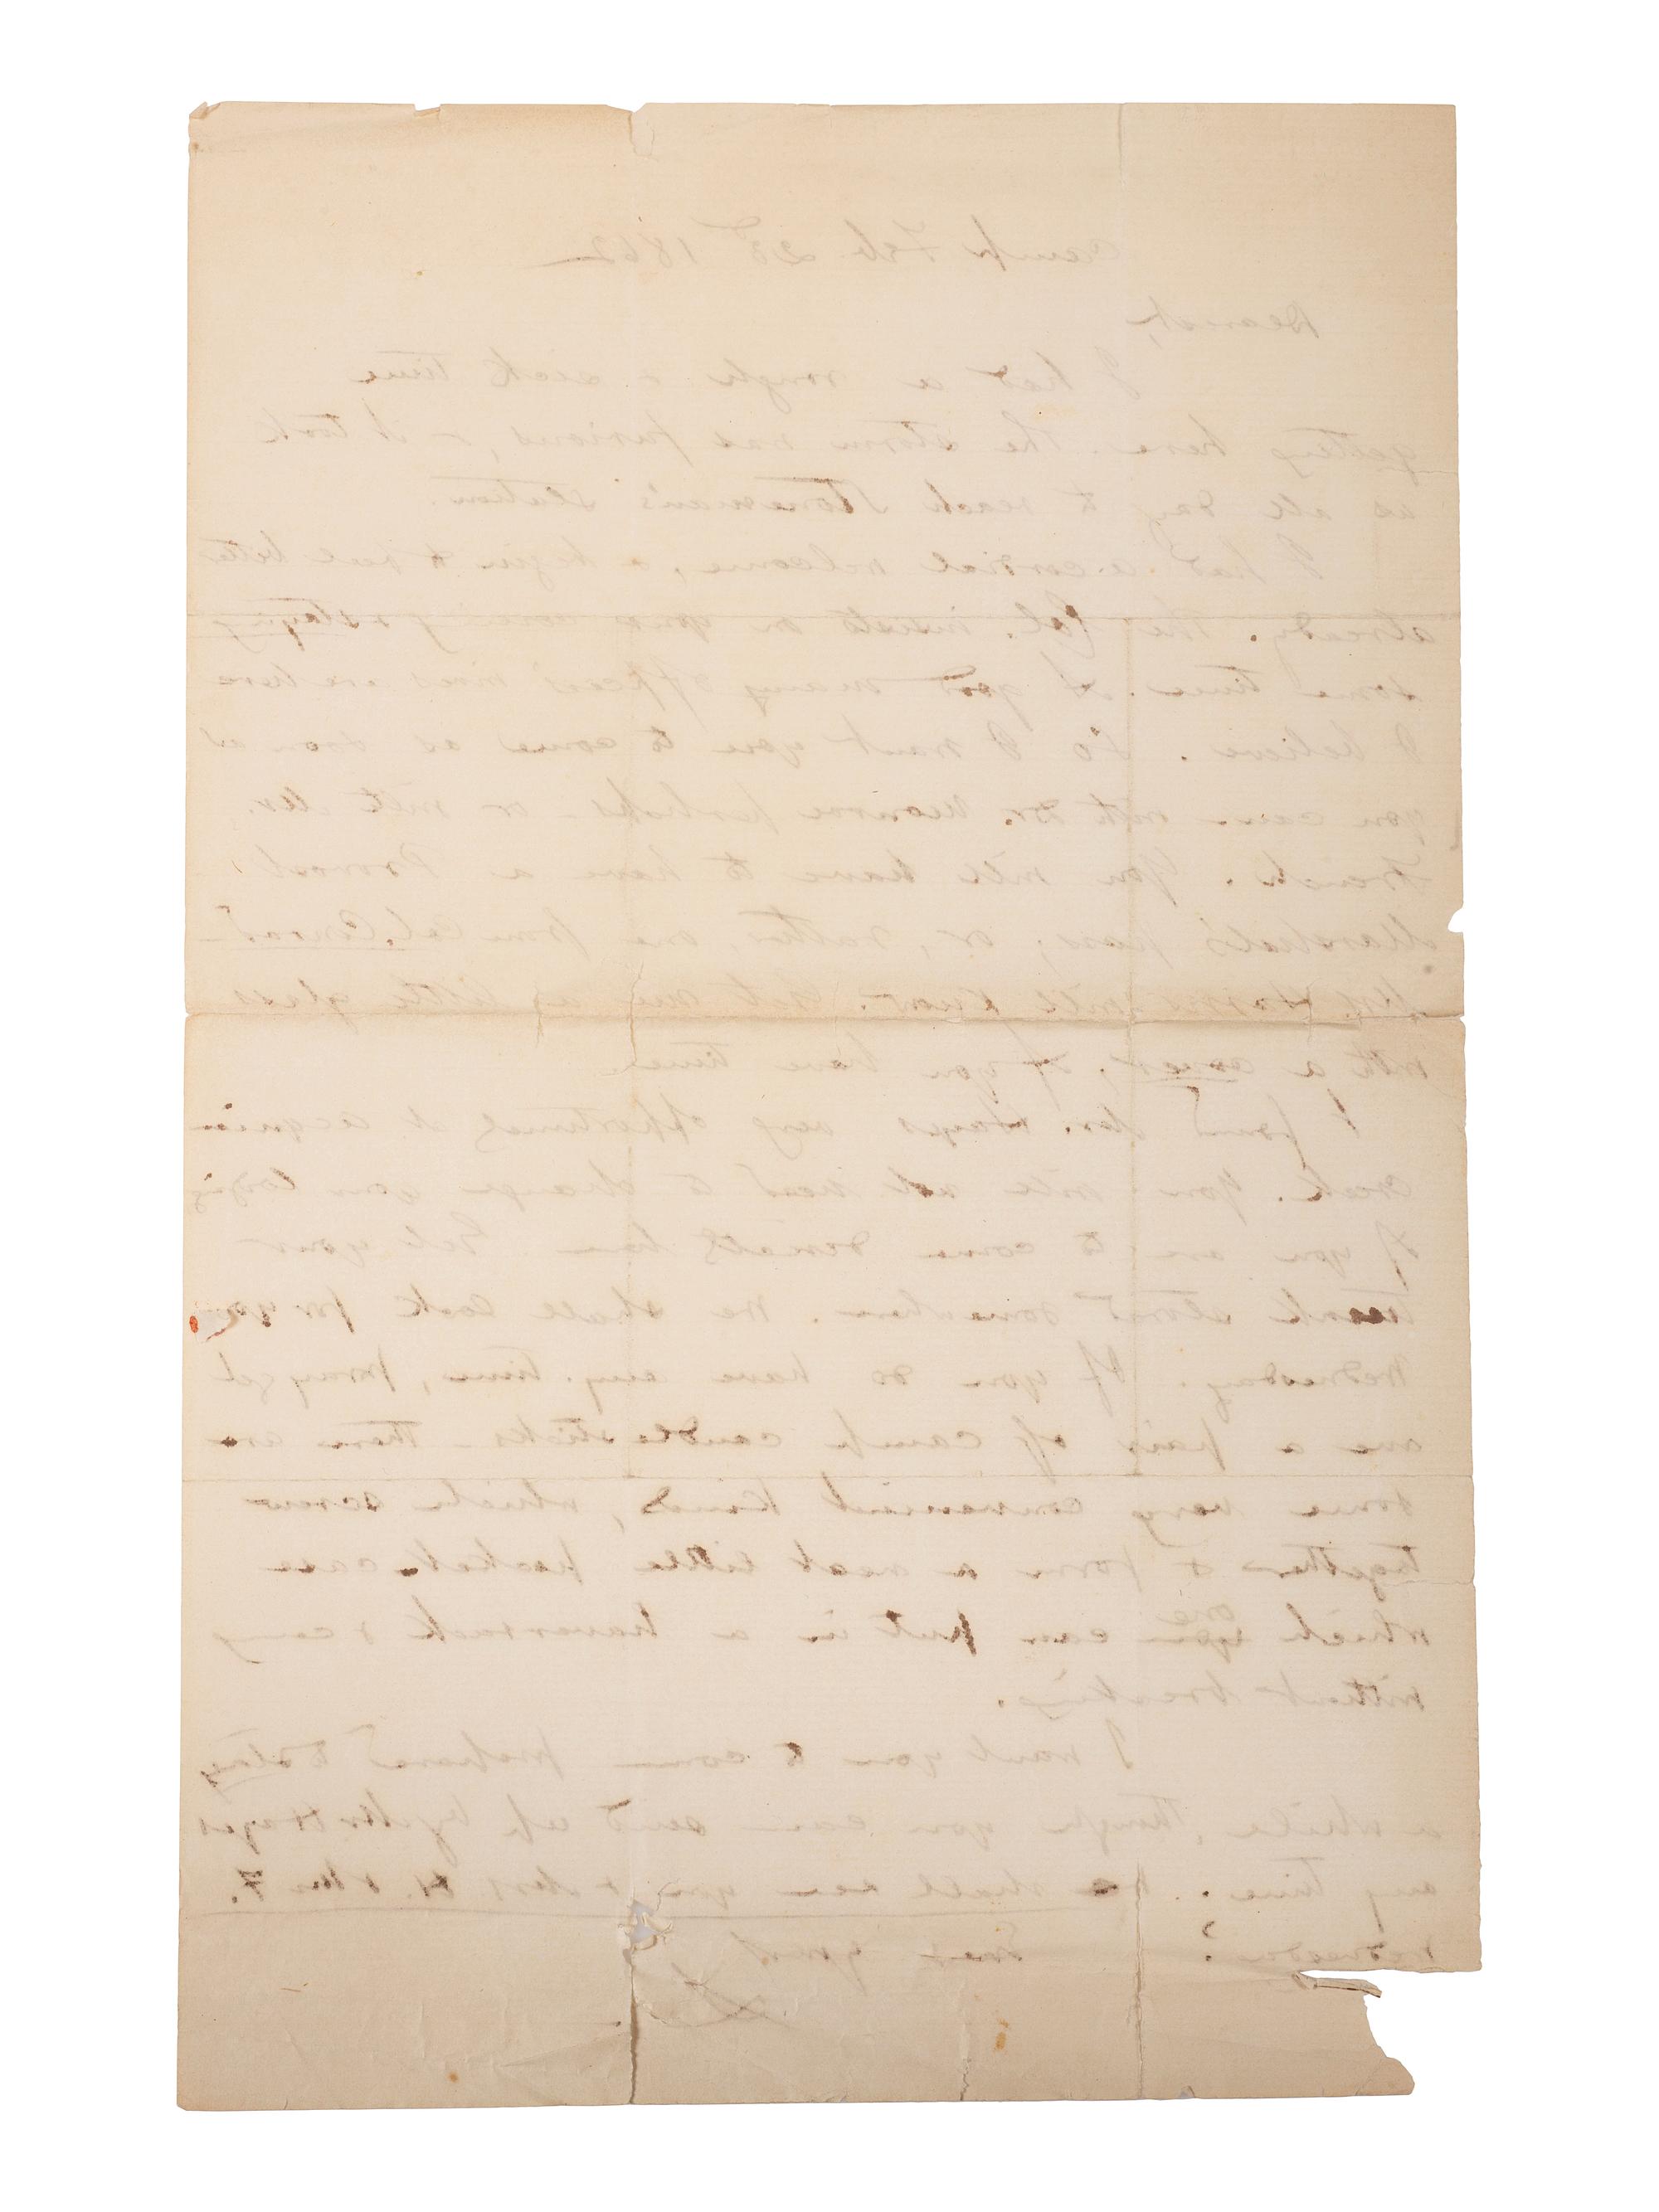 Camp Feb 23d 1862
Dearest,
I had a rough & sick time
getting here. The storm was furious, & it took
us all day to reach Stoneman's station.
I had a cordial welcome, & begin to feel better
already. The Col. insists on your coming & staying
some time. A good many officers' wives are here
I believe. So I want you to come as soon as
you can with Dr. Monroe perhaps - or with
French. You will have to have a Provost
Marshal's pass, or, rather one from Col. Conrad
will know. Get me a little glass
with a cover, if you have time.
I found Mr. Hayes very at Acquia
creek. You will not need to change your
if you are to come here. Get your
trunk stored somewhere. We shall look for you
Wednesday. If you do have any time, pray get
me a pair of camp candlesticks - There are
some very convenient kinds, which screw
together & form a neat little pocket-case
which one can put in a haversack & carry
without breaking.
I want you to come prepared to stay
a while, though you can send up by Mr Hayes
any time. We shall see you & Mrs H. & Mr F.
?
yours